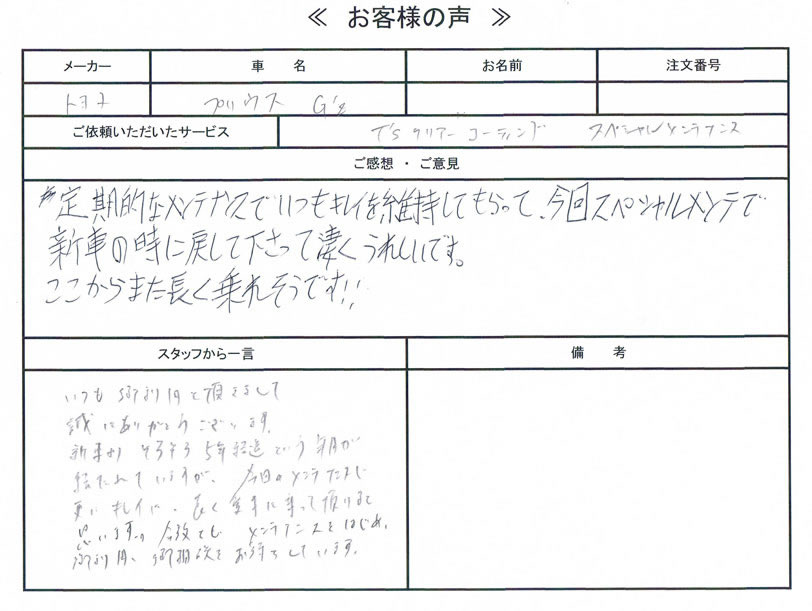 ≪ お客様の声 ≫
メーカー 車 名 お名前 注文番号
トヨタ プリウス G's
ご依頼いただいたサービス T'sクリアーコーティング スペシャルメンテナンス
ご感想・ご意見
定期的なメンテナンスでいつもキレイを維持してもらって、今回スペシャルメンテで
新車の時に戻して下さって凄くうれしいです。
ここからまた長く乗れそうです!!
スタッフから一言 備 考
いつも御利用を頂きまして
誠にありがとうございます。
新車より そろそろ5年経過という年月が
経たれていますが、今回のメンテナンスで
更にキレイに、長く 大事に乗って頂けると
思います。今後とも メンテナンスをはじめ、
御利用、御相談をお待ちしています。